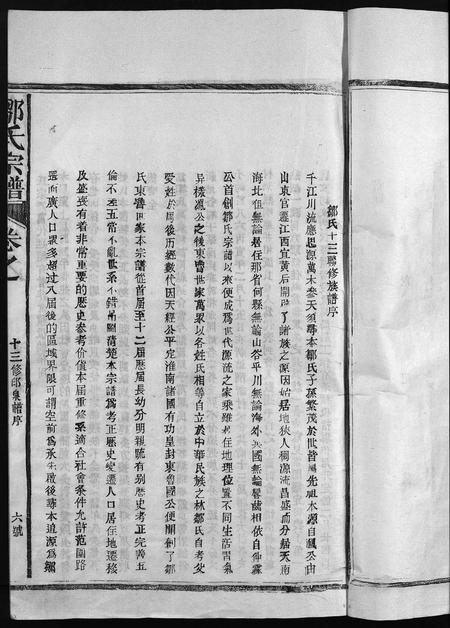 鄒氏十三聯修族譜序
千江川流應思源萬木參天須尋本鄒氏子孫繁茂於世皆因先祖木源自飄災由
山東官遷江西宜黃后開闢了諸族之源因始居地狹人稠源流昌盛而分居天南
海北但無論居住那省何縣無論山谷平川無論海外異國無論唇齒相依自仲霖
公首創鄒氏宗譜以來便成為世代源流之家乘雖居住地理位置不同生活習氣
異機源公之後東魯世家萬眾以各姓氏相等自立於中華民族之林鄒氏自考父
受姓於周後历經數代因天經公平定淮南諸國有功皇封東魯國公便開創了鄒
氏東魯世家本宗譜從首届至十二届歷届長幼分明親疏有别歷史考正完善五
倫不差五常不亂世系不錯昭圖清楚本宗譜為考正歷史變遷人口居住地遷移
及盛衰有着非常重要的歷史參考价值本届重修系適合社會条件允許范圍路
遙而廣人口眾多超过八届後的區域界限可謂空前為承先啟後尋本追源為續
鄒氏宗譜
卷之一
十三修邵泉譜序
六號